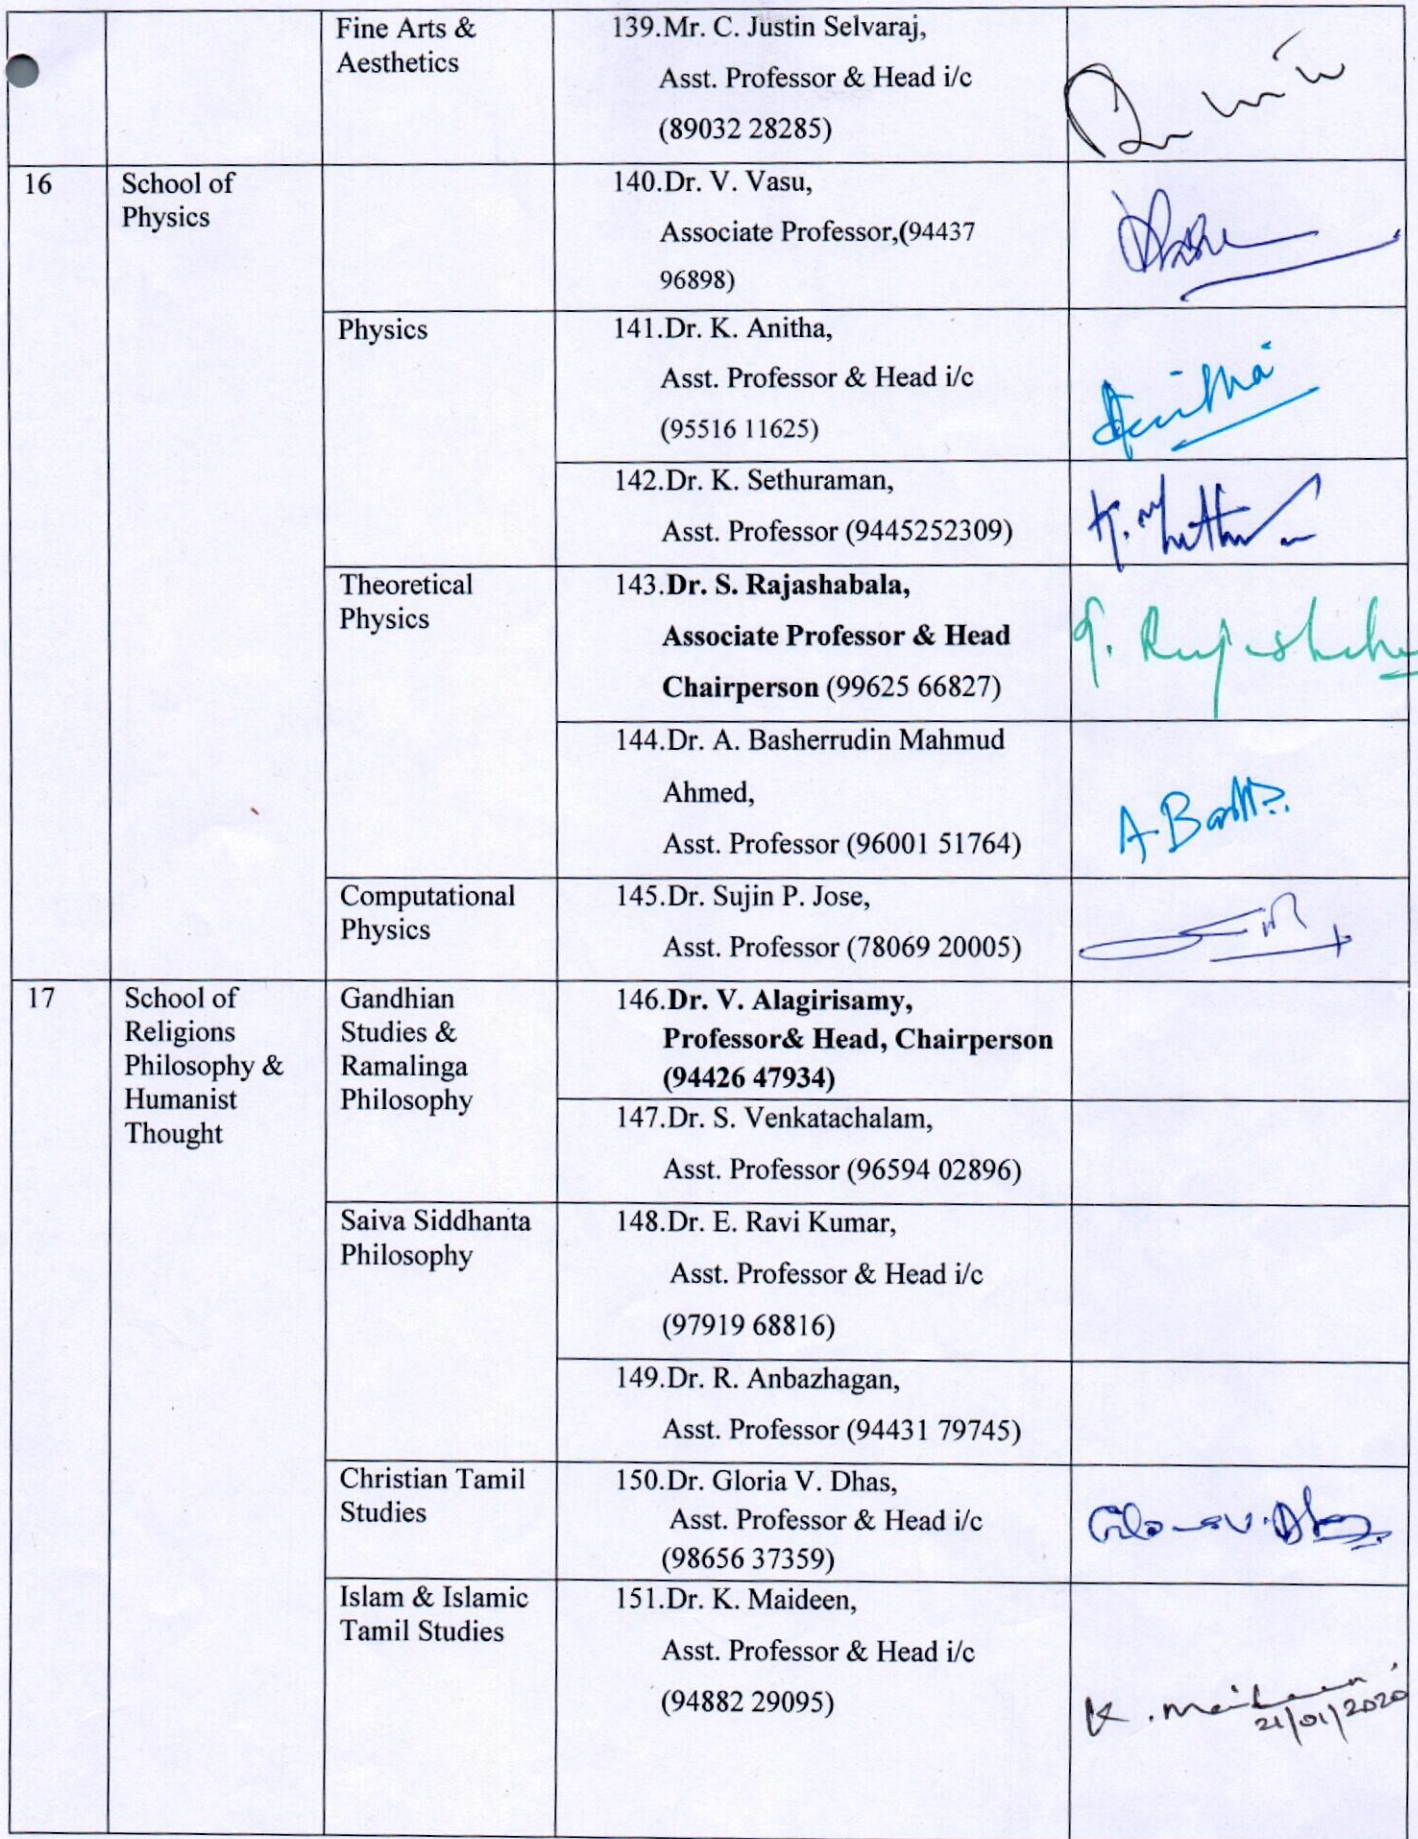 Fine Arts &
Aesthetics
139.Mr. C. Justin Selvaraj,
Asst. Professor & Head i/c
(89032 28285)
16
School of
Physics
140.Dr. V. Vasu,
Associate Professor,(94437
96898)
Physics
141.Dr. K. Anitha,
Asst. Professor & Head i/c
(95516 11625)
Anitha
142.Dr. K. Sethuraman,
Asst. Professor (9445252309)
Theoretical
Physics
143.Dr. S. Rajashabala,
Associate Professor & Head
Chairperson (99625 66827)
144.Dr. A. Basherrudin Mahmud
Ahmed,
Asst. Professor (96001 51764)
Computational
Physics
145.Dr. Sujin P. Jose,
Asst. Professor (78069 20005)
17
School of
Religions
Philosophy &
Humanist
Thought
Gandhian
Studies &
Ramalinga
Philosophy
146.Dr. V. Alagirisamy,
Professor& Head, Chairperson
(94426 47934)
147.Dr. S. Venkatachalam,
Asst. Professor (96594 02896)
Saiva Siddhanta
Philosophy
148.Dr. E. Ravi Kumar,
Asst. Professor & Head i/c
(97919 68816)
149.Dr. R. Anbazhagan,
Asst. Professor (94431 79745)
Christian Tamil
Studies
150.Dr. Gloria V. Dhas,
Asst. Professor & Head i/c
(98656 37359)
Islam & Islamic
Tamil Studies
151.Dr. K. Maideen,
Asst. Professor & Head i/c
(94882 29095)
K. Maideen
21/01/2020